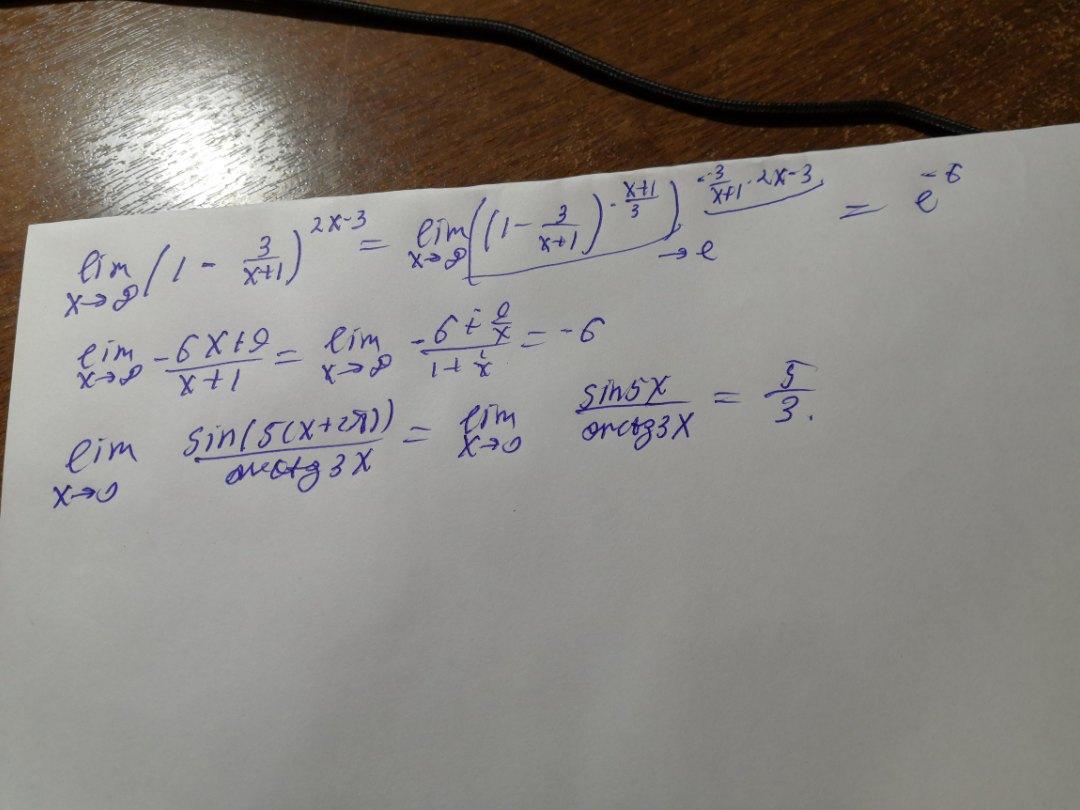 lim x→∞ (1 - 3/(x+1))^(2x-3) = lim x→∞ ((1 - 3/(x+1))^(-(x+1)/3))^(-3/(x+1) · 2x-3) = e^(-6) →e
lim x→∞ (-6x+9)/(x+1) = lim x→∞ (-6+9/x)/(1+1/x) = -6
lim x→0 sin(5(x+2π))/arctg3x = lim x→0 sin5x/arctg3x = 5/3.